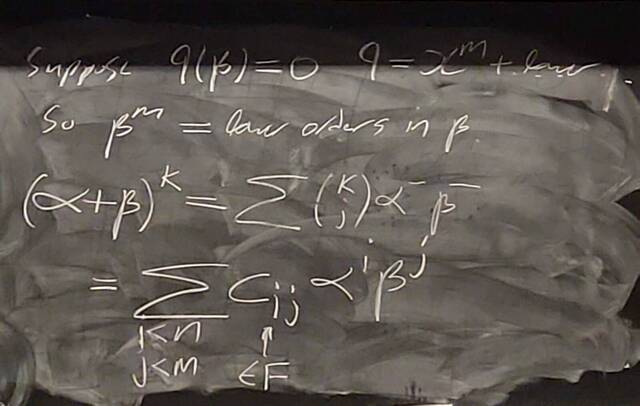 Suppose q(β)=0 q = x^m + lower.
So β^m = lower orders in β.
(α+β)^k = ∑ (k j) α^- β^-
= ∑ c_ij α^i β^j
i<n
j<m ∈F